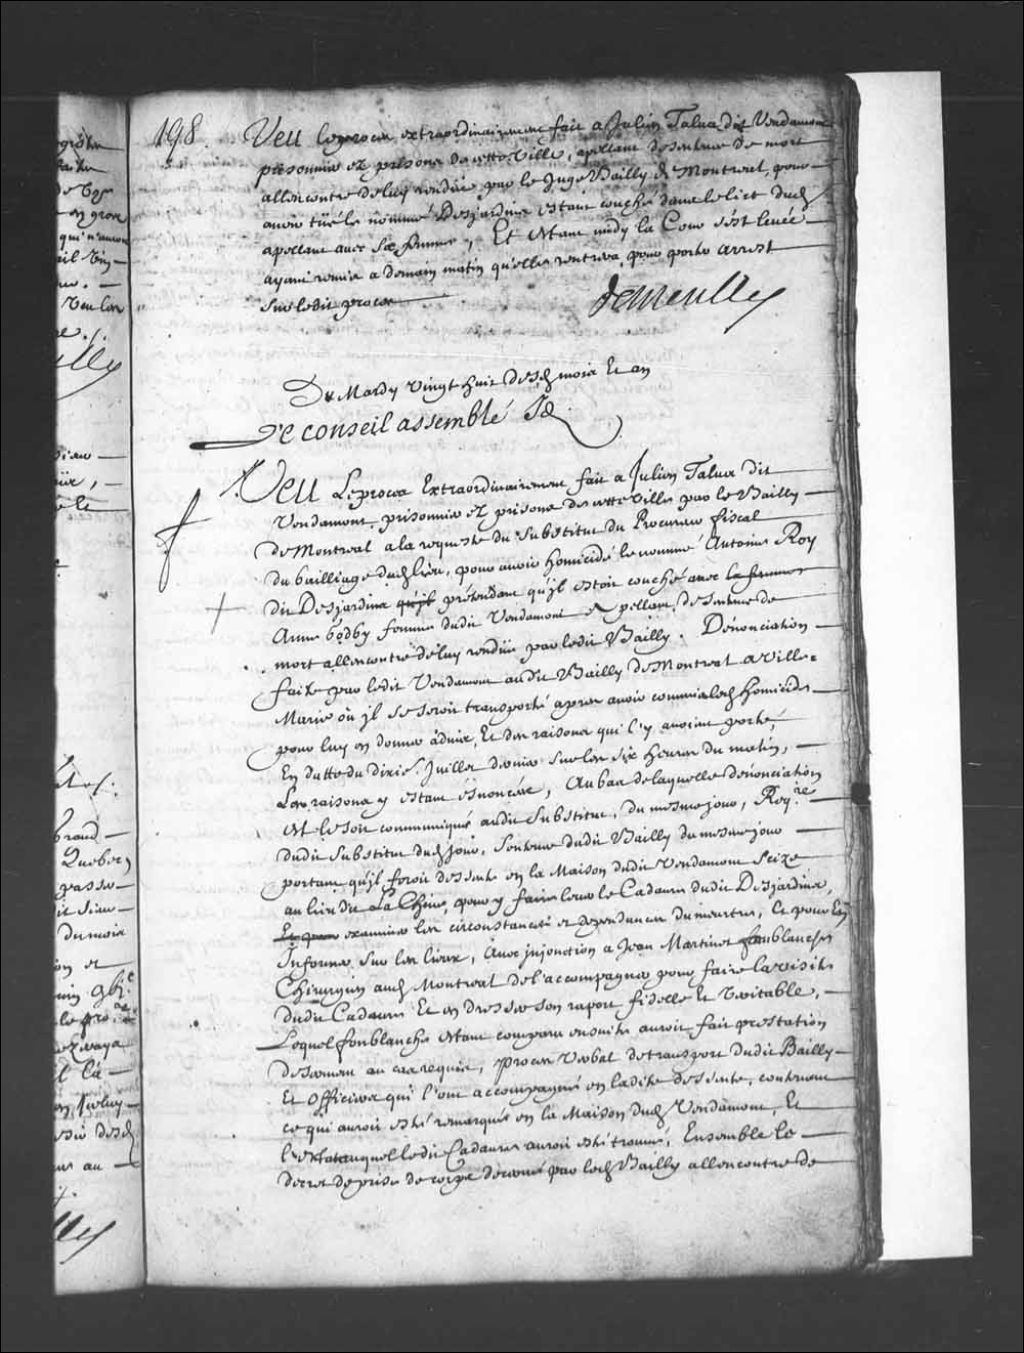 198.
Veu le proces extraordinairement fait a Julien Talua dit Vendamont
prisonnier ez prisons de cette Ville, apellant de sentence de mort
allencontre de luy rendüe par le Juge Bailly de Montreal, pour
avoir tüé le nommé Desjardins estant couché dans le lict dud.
apellant avec sa femme, Et estant midy la Cour s'est levée
ayant remis a demain matin qu'elle rentrera pour porter arrest
sur ledit proces
DeMeulle
Du Mardy vingt huit desd. mois Et an
Le conseil assemblé &a.
Veu Le proces Extraordinairement fait a Julien Talua dit
Vendamont, prisonnier ez prisons de cette Ville par le Bailly
de Montreal a la requeste du Substitut du Procureur fiscal
du bailliage dud. lieu, pour avoir homicidé le nommé Antoine Roy
dit Desjardins qu'jl prétendant qu'jl estoit couché avec la femme
Anne Godby femme dudit Vendamont Apellant, de sentence de
mort allencontre de luy rendüe par ledit Bailly. Dénonciation
faite par ledit Vendamont audit Bailly de Montreal a Ville
Marie où jl se seroit transporté apres avoir commis led. homicide
pour luy en donner advis, Et des raisons qui l'y avoient porté,
En datte du dixe. Juillet dernier sur les six heures du matin,
Les raisons y estant énoncées, Au bas de laquelle dénonciation
est le soit communiqué audit Substitut, du mesme jour, Reqre.
dudit Substitut dud. jour, Sentence dudit Bailly du mesme jour
portant qu'jl feroit dessente en la Maison dudit Vendamont seize
au lieu de La Chine, pour y faire lever le Cadavre dudit Desjardins,
Et pour examiner les circonstances et dependances du meurtre, Et pour En
Informer sur les lieux, Avec injonction a Jean Martinet fonblanche
Chirurgien aud. Montreal de l'accompagner pour faire la visite
dudit Cadavre Et en dresser son raport fidelle Et veritable,
Lequel fonblanche estant comparu ensuite auroit fait prestation
de serment au cas requis, proces verbal de transport dudit Bailly
Et officiers qui l'ont accompagné en ladite dessente, contenant
ce qui auroit esté remarqué en la Maison dud. Vendamont, Et
l'estat auquel ledit Cadavre auroit esté trouvé, Ensemble le
decret de prise de corps decerné par led. Bailly allencontre de